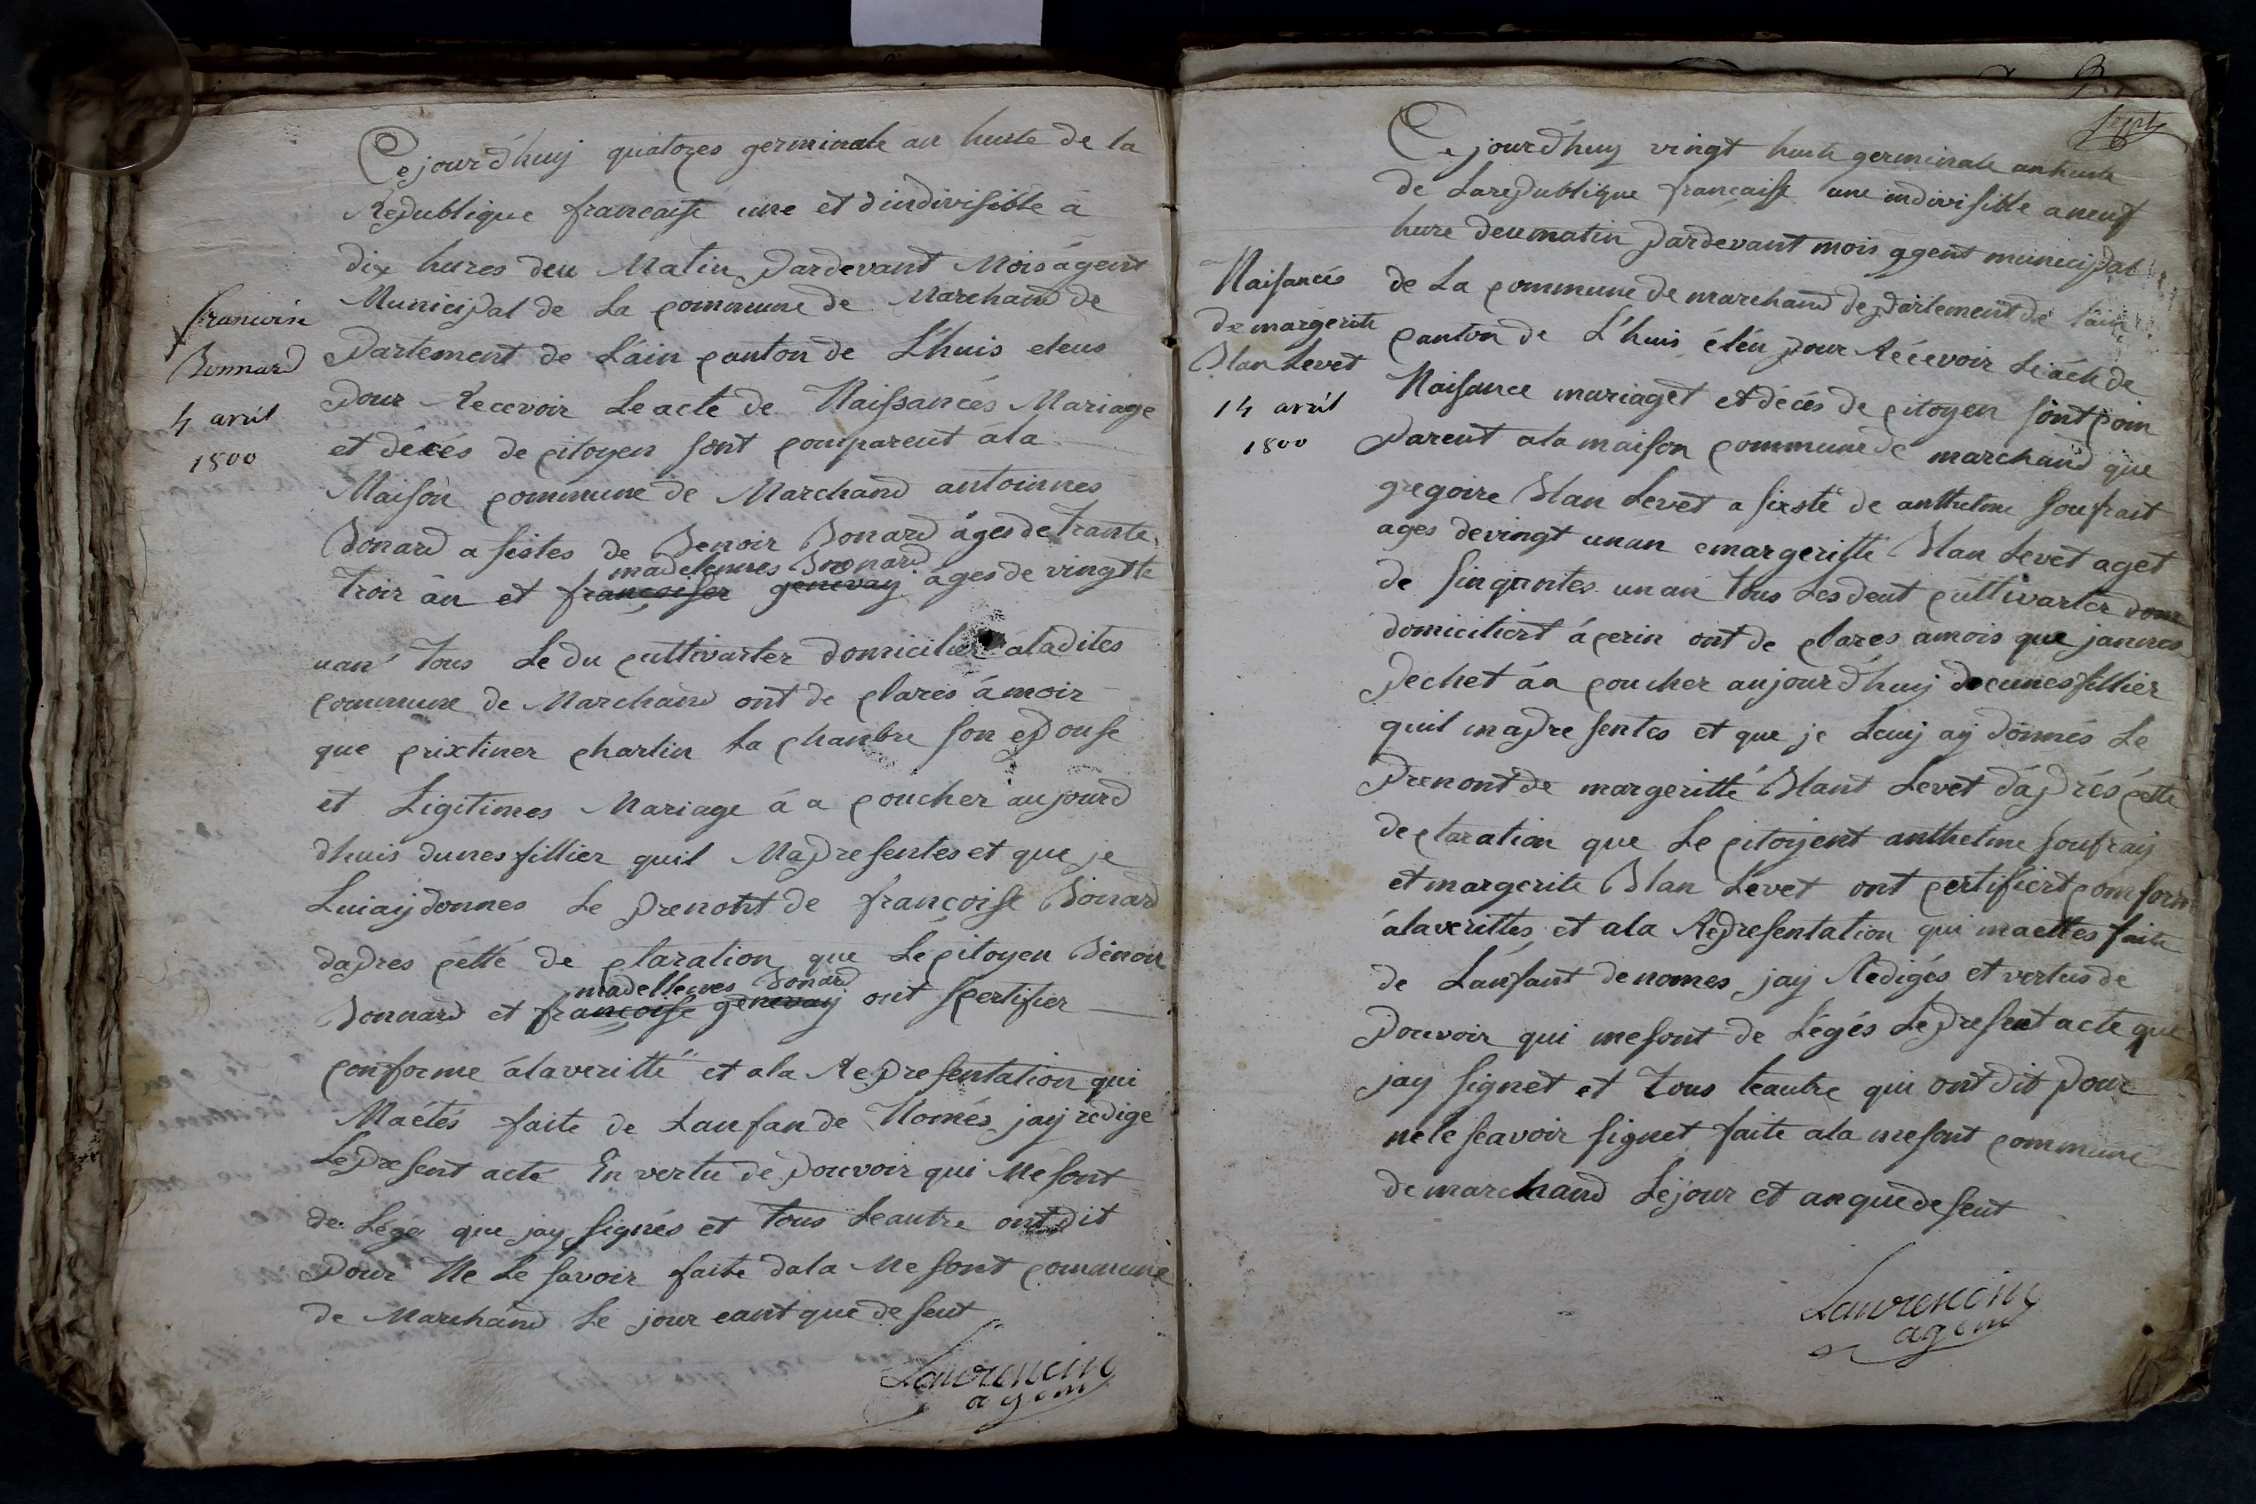 Cejourdhuy quatozes germinale an huite de la
Republique francaise une et dindivisible a
dix hures deu Matin pardevant Mois agent
Municipal de La commune de Marchand de
francoise
Partement de Lain canton de Lhuis eleus
Bonnard
pour Recevoir Le acte de Naissancés Mariage
4 avril
et décés de citoyen sont comparent àla
1800
Maison commune de Marchand antoinnes
Bonard a sistes de Benoir Bonard âges de trante
madelennes Bronard
troir ân et françoiser genevay âges de vingtte
unan tous Le du cultivarter domicilier aladites
commune de Marchand ont de clares àmoir
que crixtiner charlin La chanbre son epouse
et Ligitimes Mariage à a coucher aujourd
dhuis dunes fillier quil Mapresentes et que je
Luiaij donnes Le prenont de françoise Bonard
dapres cétté de claration que Lé citoyen Bénoir
madellennes Bonard
Bonnard et françoise genevay ont scertifier
conforme àlaveritté et ala Representation qui
Maétés faite de Lanfan de Només jaij redigé
Lepresent acté En vertu de pouvoir qui Mesont
de Lége que jay signés et tous Leautre ont dit
pour Ne Le savoir faite dala Mesont commune
de Marchand Le jour eant que desent
Laurencin
agent
Sept
Cejourdhuy vingt huite germinale anhuite
de Larepublique francaisse une indivisible a neuf
hure deumatin pardevant mois agent municipal
Naisancés
de La commune de marchand departement de Lain
de margerite
canton de L'huis éléu pour Récevoir Le acte de
Blan Levet
Naisance mariaget et décés de citoyen sont com
14 avril
1800
parent ala maison commune de marchand que
gregoire Blan Levet a sixste de anthelme soufrait
ages devingt unan emargeritte Blan Levet aget
de sinqantes unan tous Les deut cultivarter dom
domiciliert à cerin ont de clares amois que jannes
Pechet àa coucher aujourdhuij decunes fillier
quil mapresentes et que je Leuij aij donnés Le
Prenont de margeritté Blant Levet dáprés cétte
declaration que Le citoijent anthelme soufraij
et margerite Blan Levet ont certifiert comform
àlaverittes et ala Representation qui maettes faite
de Lanfant denomes jaij Redigés et vertus de
Pouvoir qui mesont de Légés Lepresent acte que
jay signet et tous teautre qui ont dit pour
nele seavoir signet faite ala mesont commune
de marchand Lejour et anquedesent
Laurencin
agent